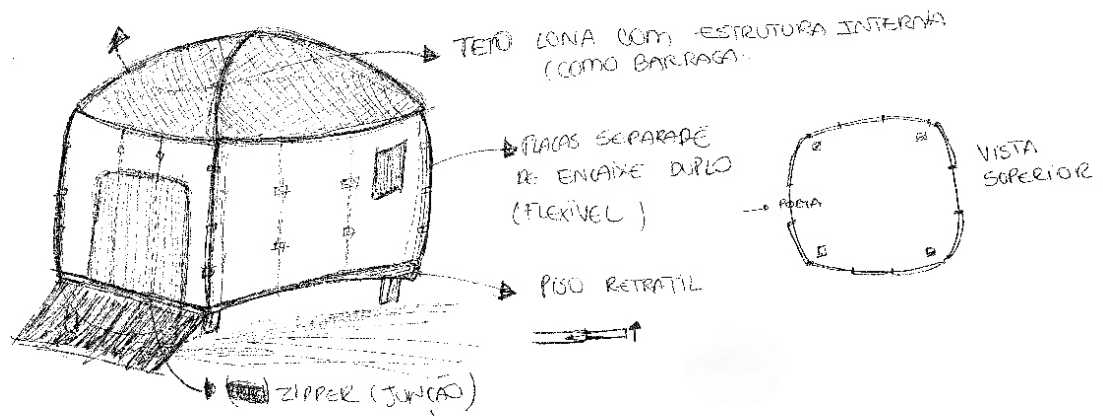 TETO LONA COM ESTRUTURA INTERNA
(COMO BARRACA.
PLACAS SEPARADE
DE ENCAIXE DUPLO
(FLEXÍVEL)
PORTA
VISTA
SUPERIOR
PISO RETRATIL
ZIPPER (JUNÇÃO)